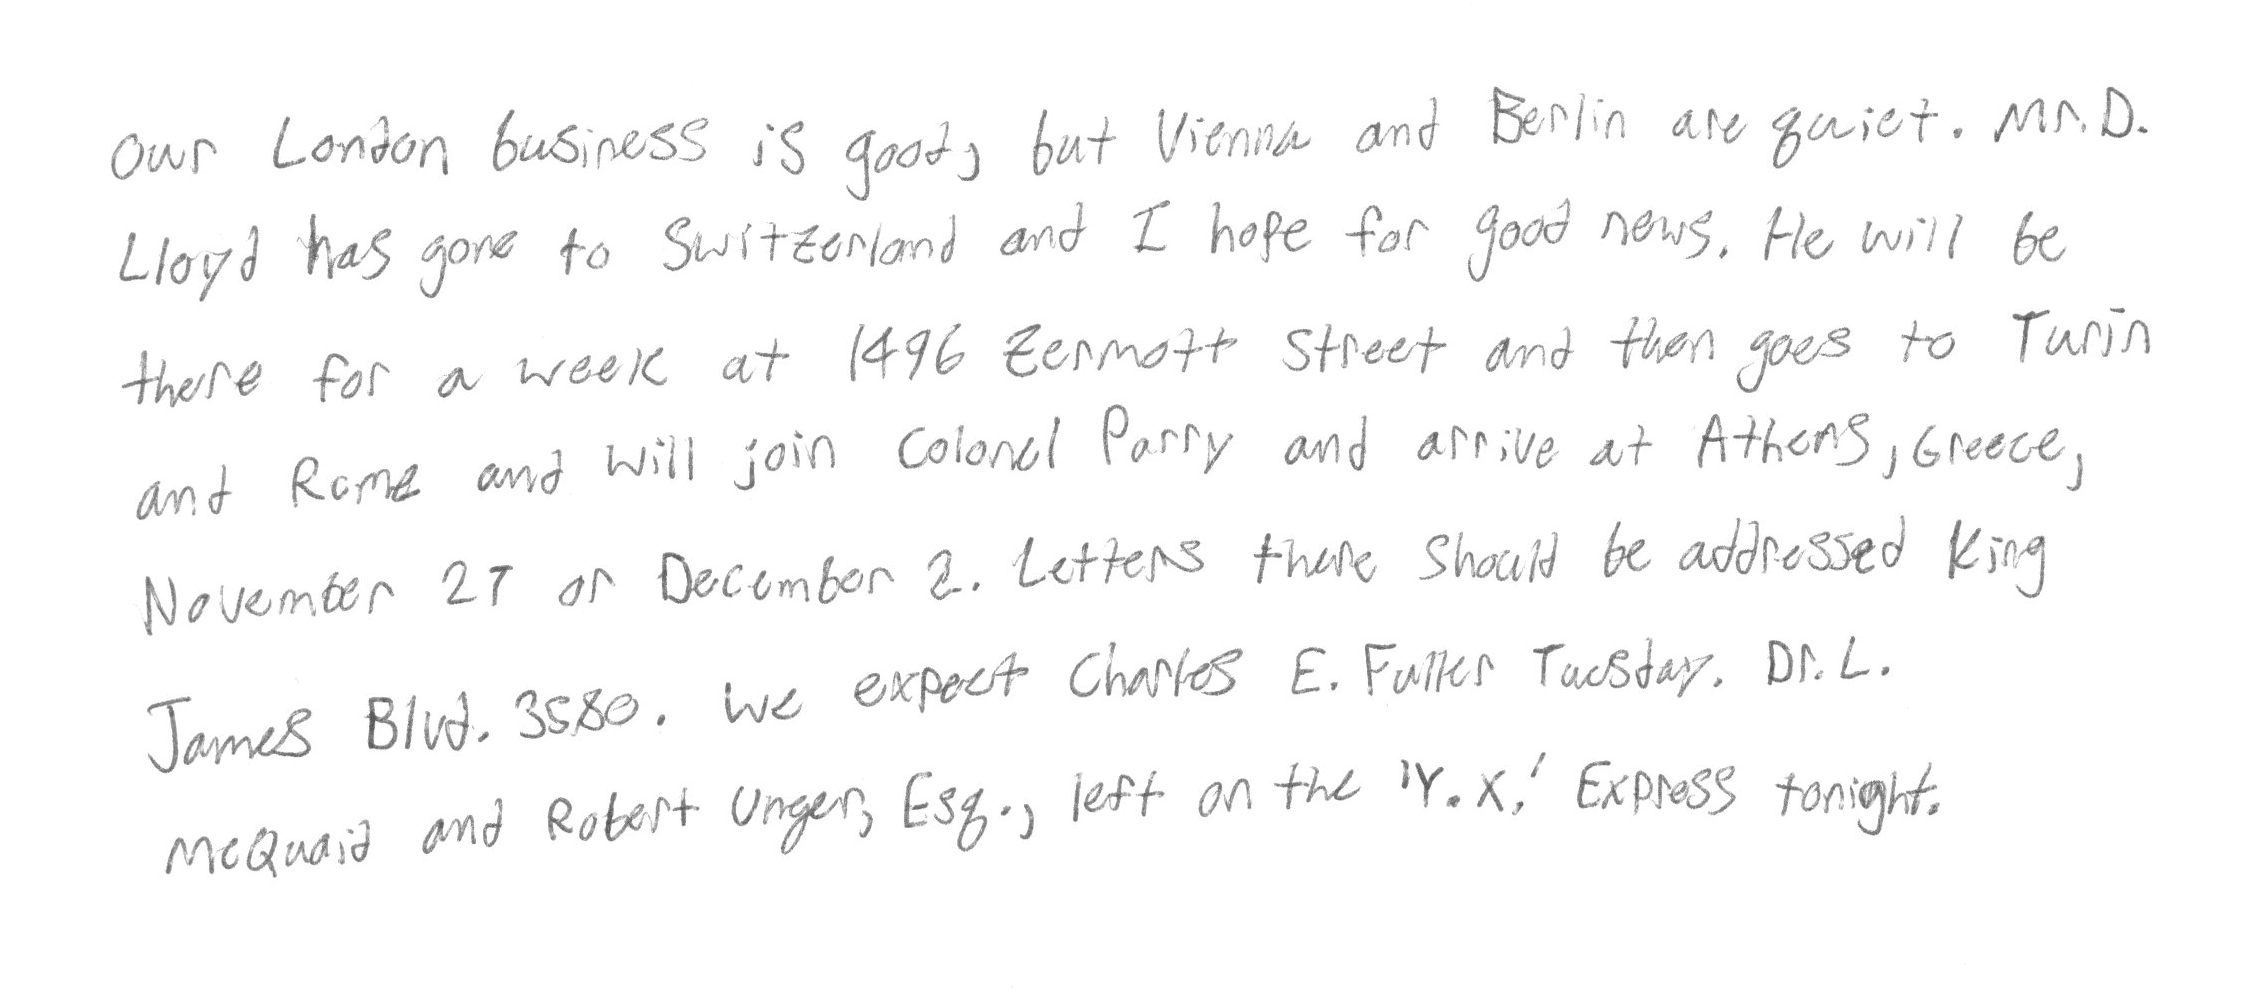 Our London business is good, but Vienna and Berlin are quiet. Mr. D.
Lloyd has gone to Switzerland and I hope for good news. He will be
there for a week at 1496 Zermott Street and then goes to Turin
and Rome and will join Colonel Parry and arrive at Athens, Greece,
November 27 or December 2. Letters there should be addressed King
James Blvd. 3580. We expect Charles E. Fuller Tuesday. Dr. L.
McQuaid and Robert Unger, Esq., left on the 'Y. X.' Express tonight.